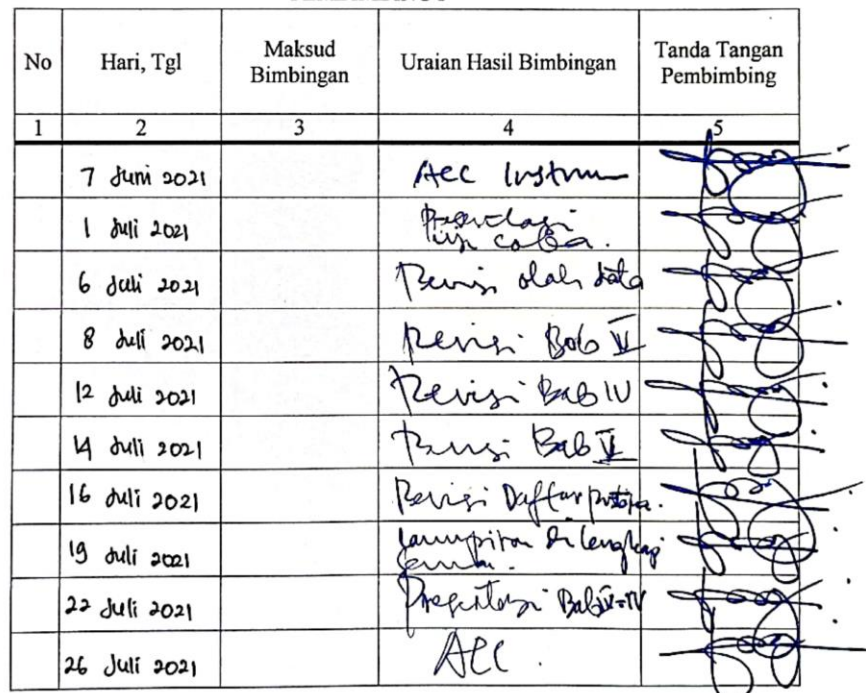 No Hari, Tgl Maksud Bimbingan Uraian Hasil Bimbingan Tanda Tangan Pembimbing
1 2 3 4 5
7 Juni 2021 Acc Instrum
1 Juli 2021 uji coba.
6 Juli 2021 Revisi olah data
8 Juli 2021 Revisi Bab IV
12 Juli 2021 Revisi Bab IV
14 Juli 2021 Revisi Bab V
16 Juli 2021 Revisi Daftar pustaka.
19 Juli 2021 Lampiran dilengkapi semua.
22 Juli 2021 Bab
26 Juli 2021 ACC.